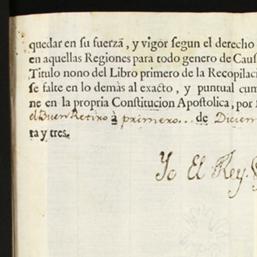 quedar en su fuerza, y vigor segun el derecho
en aquellas Regiones para todo genero de Caus
Titulo nono del Libro primero de la Recopilaci
se falte en lo demàs al exacto, y puntual cum
ne en la propria Constitucion Apostolica, por
el Buen Retiro à primero... de Diciem
ta y tres.
Yo El Rey.